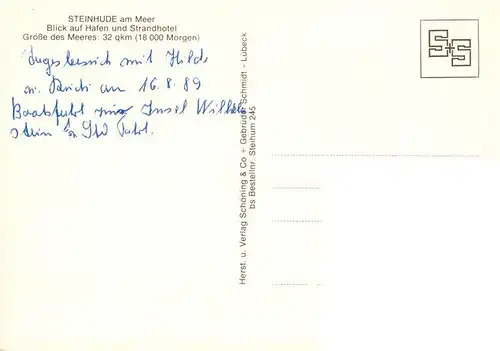 STEINHUDE am Meer
Blick auf Hafen und Strandhotel
Größe des Meeres: 32 qkm (18 000 Morgen)
Tagesbesuch mit Hilde
u. am 16.8.89
Bootsfahrt zur Insel Wilhelm
stein ½ Std Fahrt.
Herst. u. Verlag Schöning & Co + Gebrüder Schmidt - Lübeck
bs Bestellnr. Steihum 245
S+S